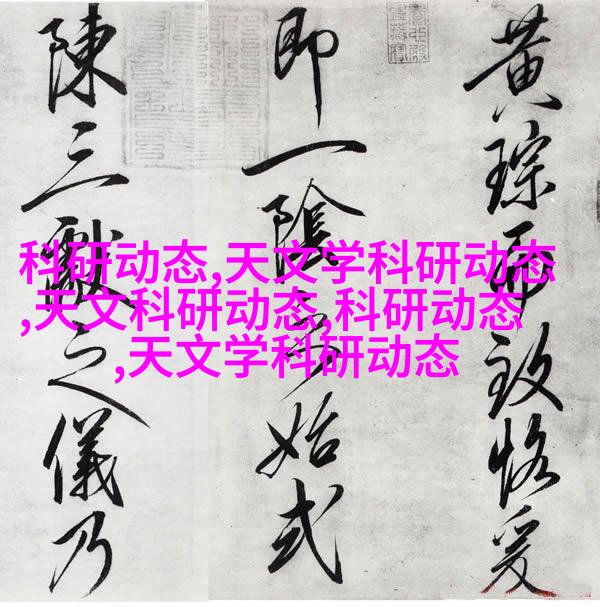 黃琮致恪爰
即一陰始式
陳三獻之儀乃
科研动态,天文学科研动态
,天文科研动态,科研动态
,天文学科研动态